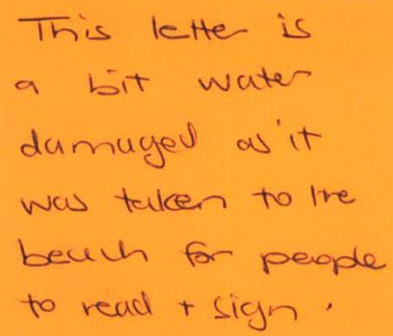 This letter is
a bit water
damaged as it
was taken to the
beach for people
to read + sign.